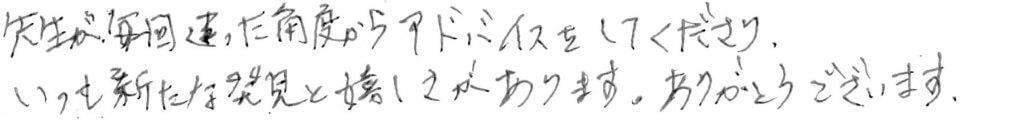 先生が毎回違った角度からアドバイスをしてくださり、
いつも新たな発見と嬉しさがあります。ありがとうございます。